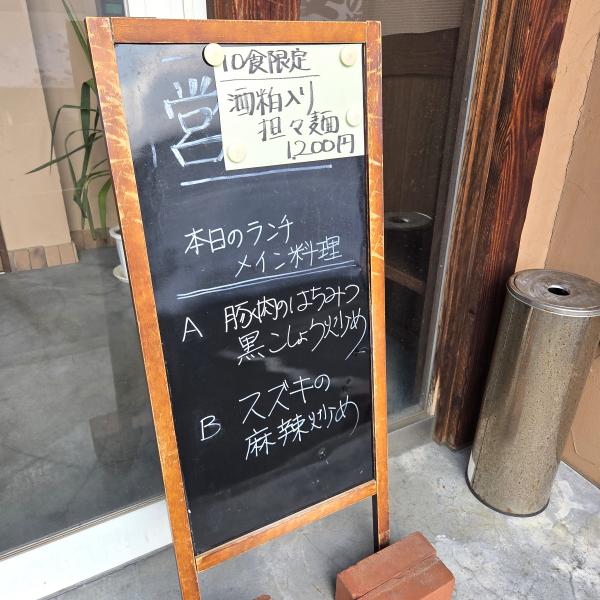 10食限定
酒粕入り
担々麺
1,200円
営
本日のランチ
メイン料理
A 豚肉のはちみつ
黒こしょう炒め
B スズキの
麻辣炒め